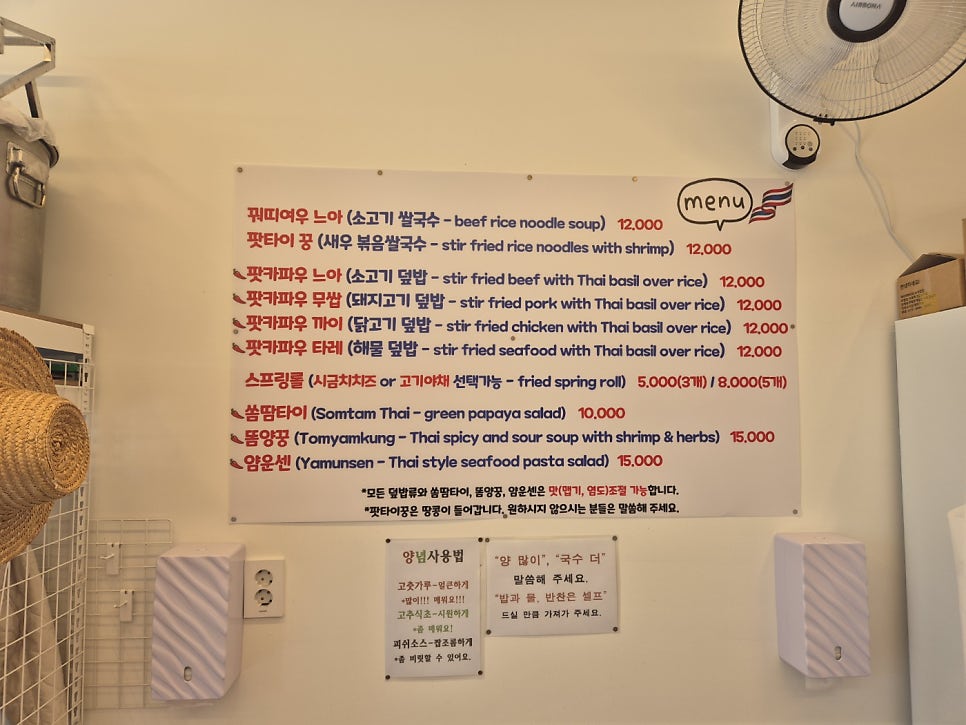 AIRBONA
menu
꿔띠여우 느아 (소고기 쌀국수 - beef rice noodle soup) 12,000
팟타이 꿍 (새우 볶음쌀국수 - stir fried rice noodles with shrimp) 12,000
팟카파우 느아 (소고기 덮밥 - stir fried beef with Thai basil over rice) 12,000
팟카파우 무쌉 (돼지고기 덮밥 - stir fried pork with Thai basil over rice) 12,000
팟카파우 까이 (닭고기 덮밥 - stir fried chicken with Thai basil over rice) 12,000
팟카파우 타레 (해물 덮밥 - stir fried seafood with Thai basil over rice) 12,000
스프링롤 (시금치치즈 or 고기야채 선택가능 - fried spring roll) 5,000(3개) / 8,000(5개)
쏨땀타이 (Somtam Thai - green papaya salad) 10,000
똠양꿍 (Tomyamkung - Thai spicy and sour soup with shrimp & herbs) 15,000
얌운센 (Yamunsen - Thai style seafood pasta salad) 15,000
*모든 덮밥류와 쏨땀타이, 똠양꿍, 얌운센은 맛(맵기, 염도)조절 가능합니다.
*팟타이꿍은 땅콩이 들어갑니다. 원하시지 않으시는 분들은 말씀해 주세요.
양념사용법
고춧가루-얼큰하게
*많이!!! 매워요!!!
고추식초-시원하게
*좀 매워요!
피쉬소스-짭조름하게
*좀 비릿할 수 있어요.
"양 많이", "국수 더"
말씀해 주세요.
"밥과 물, 반찬은 셀프"
드실 만큼 가져가 주세요.